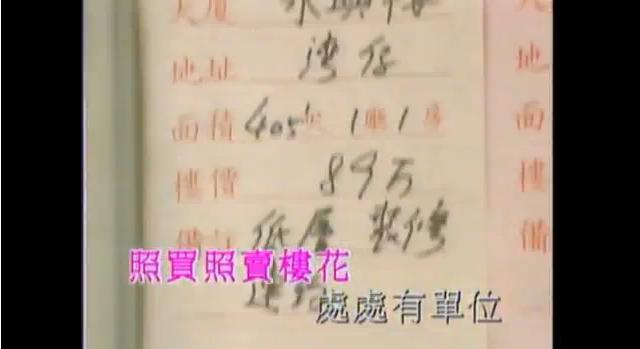 大廈 永興樓
地址 灣仔
面積 405'呎 1廳1房
樓價 89万
備註 低層 裝修
照買照賣樓花
處處有單位
地
面
樓
備